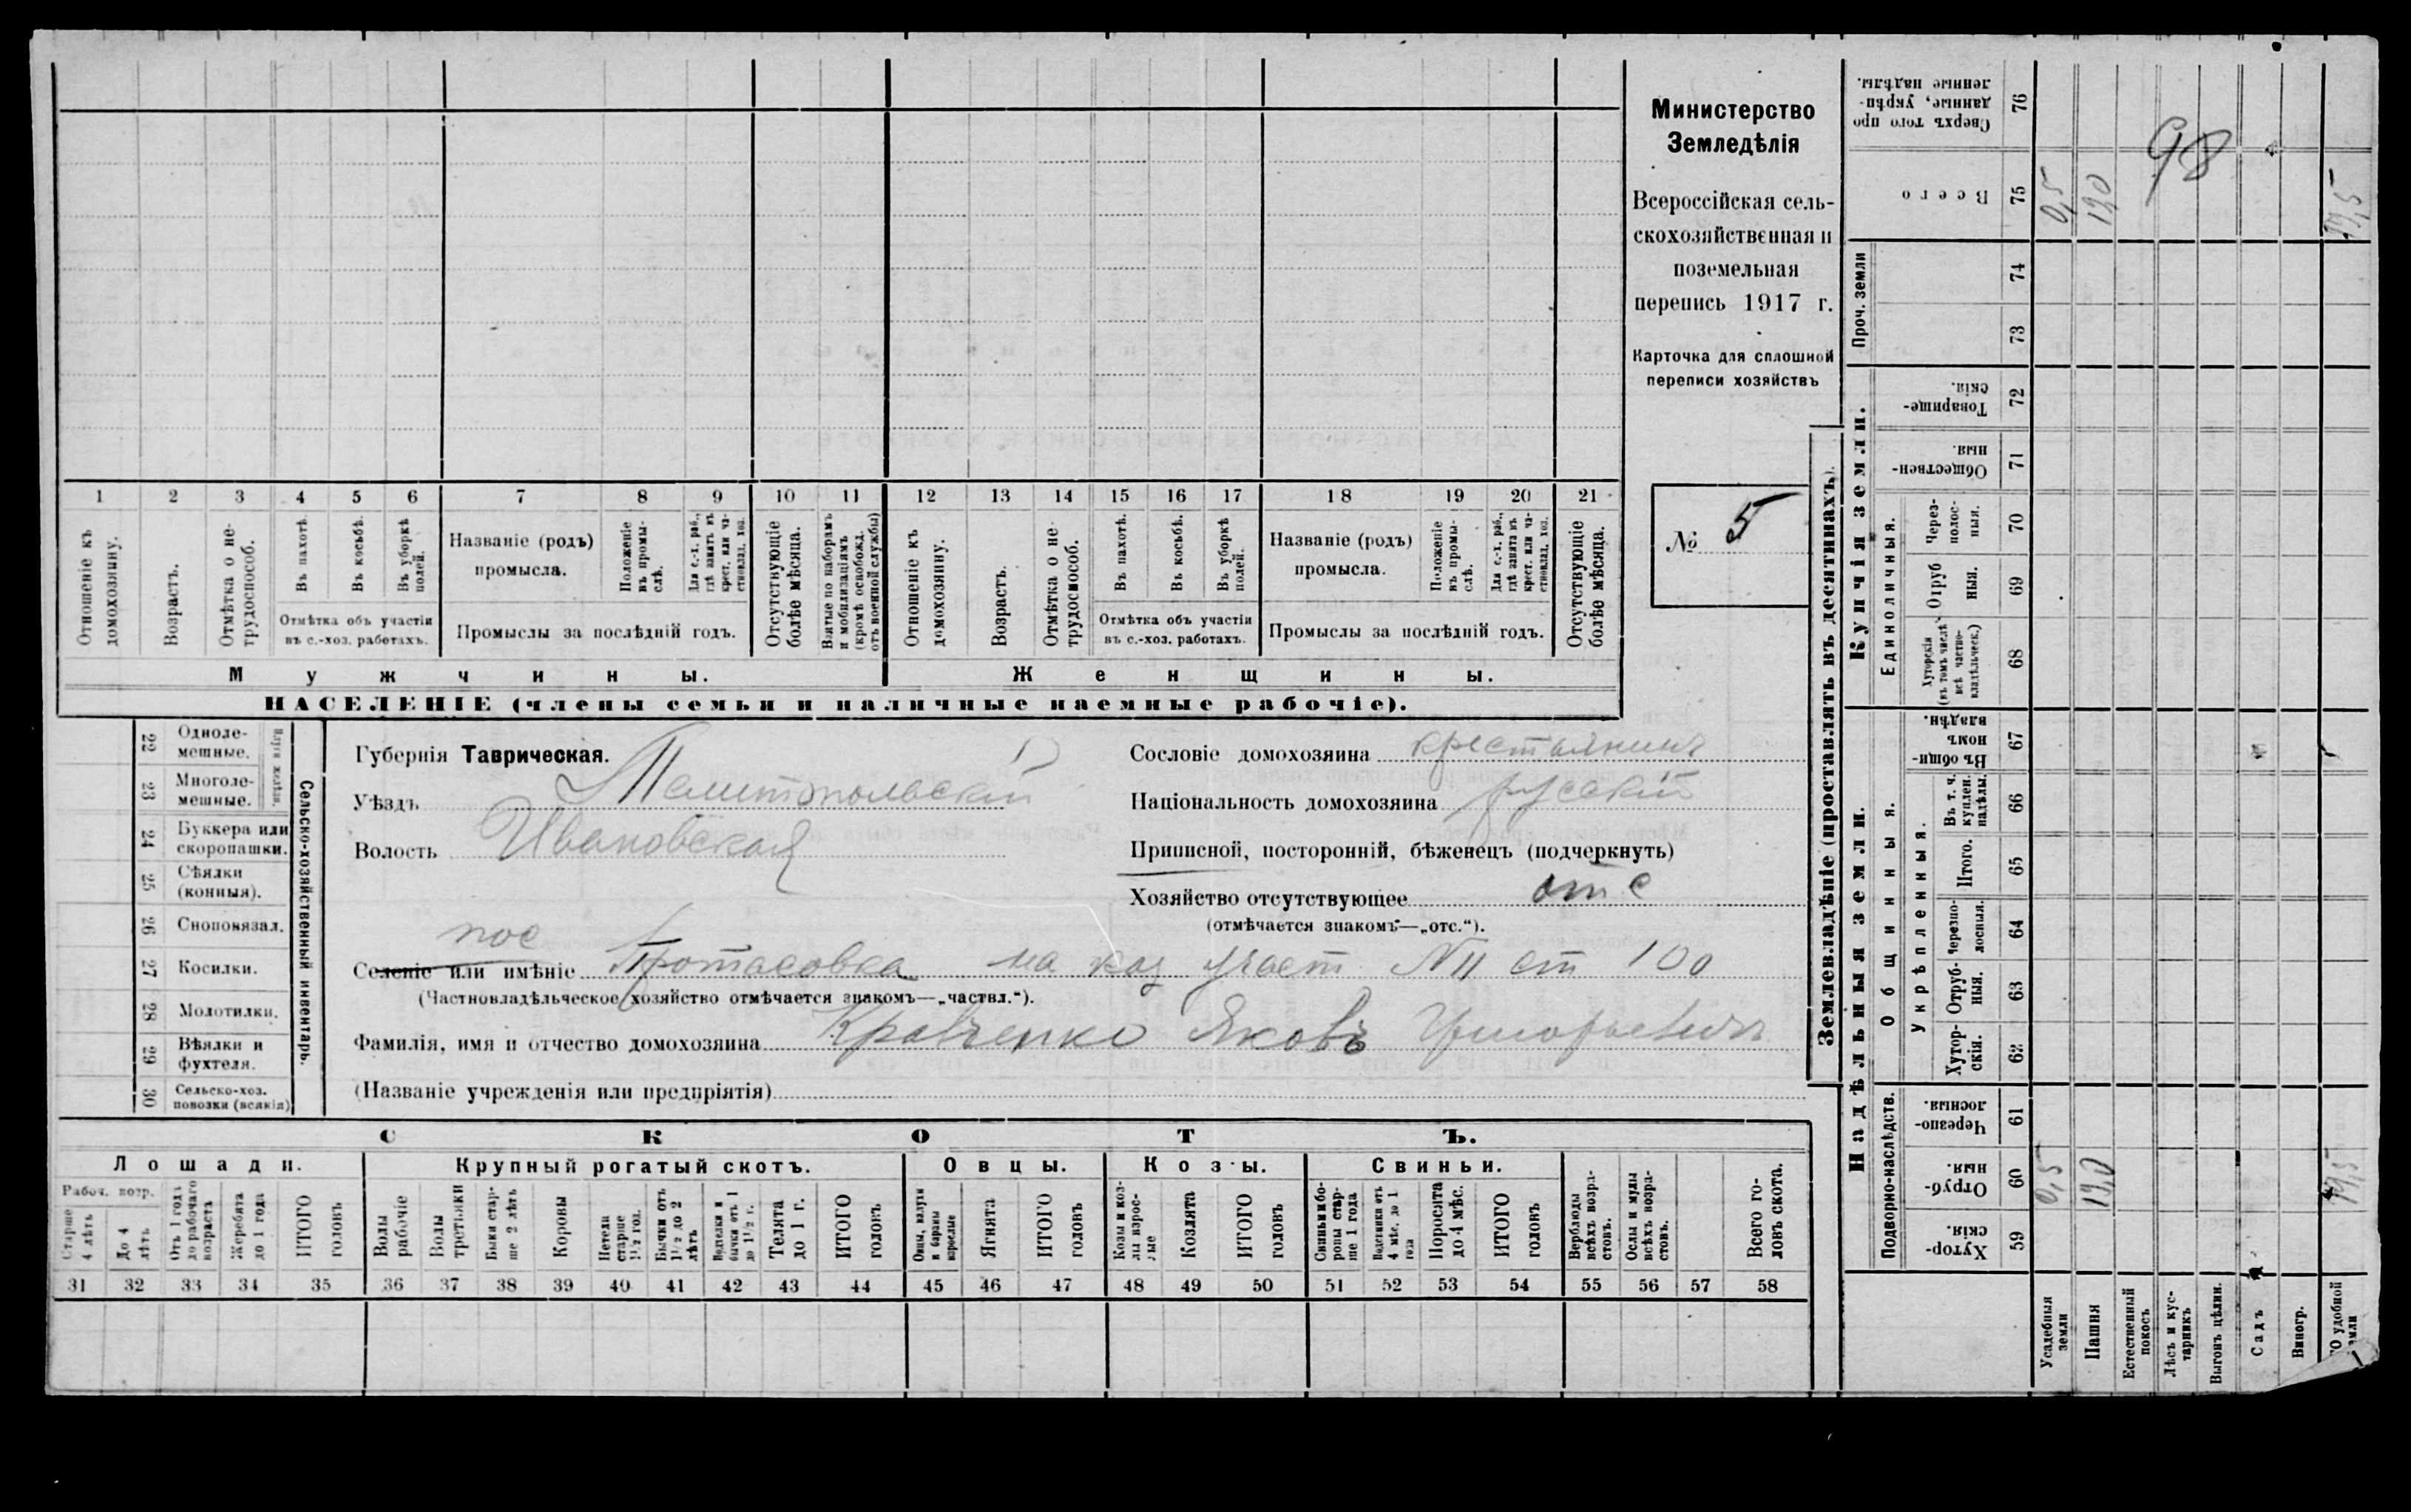 Министерство
Земледѣлія
Всероссійская сель-
скохозяйственная и
поземельная
перепись 1917 г.
Карточка для сплошной
переписи хозяйствъ
№ 5
1 2 3 4 5 6 7 8 9 10 11 12 13 14 15 16 17 18 19 20 21
Отношеніе къ домохозяину.
Возрастъ.
Отмѣтка о не-трудоспособ.
Въ пахотѣ.
Въ косьбѣ.
Въ уборкѣ полей.
Отмѣтка объ участіи
въ с.-хоз. работахъ.
Названіе (родъ)
промысла.
Положеніе въ промы-слѣ.
Для с.-х. раб., гдѣ занятъ въ крест. или ча-стновлад. хоз.
Промыслы за послѣдній годъ.
Отсутствующіе болѣе мѣсяца.
Взятые по наборамъ и мобилизаціямъ (кромѣ освобожд. отъ военной службы)
Отношеніе къ домохозяину.
Возрастъ.
Отмѣтка о не-трудоспособ.
Въ пахотѣ.
Въ косьбѣ.
Въ уборкѣ полей.
Отмѣтка объ участіи
въ с.-хоз. работахъ.
Названіе (родъ)
промысла.
Положеніе въ промы-слѣ.
Для с.-х. раб., гдѣ занята въ крест. или ча-стновлад. хоз.
Промыслы за послѣдній годъ.
Отсутствующіе болѣе мѣсяца.
Мужчины. Женщины.
НАСЕЛЕНІЕ (члены семьи и наличные наемные рабочіе).
Сельско-хозяйственный инвентарь.
Плуги желѣзн.
22 Одноле-мешные.
23 Многоле-мешные.
24 Буккера или скоропашки.
25 Сѣялки (конныя).
26 Сноповязал.
27 Косилки.
28 Молотилки.
29 Вѣялки и фухтеля.
30 Сельско-хоз. повозки (всякія)
Губернія Таврическая.
Уѣздъ Мелитопольскій
Волость Ивановская
Сословіе домохозяина крестьянинъ
Національность домохозяина русскій
Приписной, посторонній, бѣженецъ (подчеркнуть)
Хозяйство отсутствующее отс
(отмѣчается знакомъ—„отс.“).
пос
Селеніе или имѣніе Протасовка на каз участ. № ст 100
(Частновладѣльческое хозяйство отмѣчается знакомъ—„частвл.“).
Фамилія, имя и отчество домохозяина Кравченко Яковъ Григорьевичъ
(Названіе учрежденія или предпріятія)
СКОТЪ.
Лошади. Крупный рогатый скотъ. Овцы. Козы. Свиньи.
Рабоч. возр.
Старше 4 лѣтъ
До 4 лѣтъ
Отъ 1 года до рабочаго возраста
Жеребята до 1 года
ИТОГО головъ
Волы рабочіе
Волы третьяки
Быки стар-ше 2 лѣтъ
Коровы
Нетели старше 1½ год.
Бычки отъ 1½ до 2 лѣтъ
Подтелки и бычки отъ 1 до 1½ г.
Телята до 1 г.
ИТОГО головъ
Овцы, валухи и бараны взрослые
Ягнята
ИТОГО головъ
Козы и коз-лы взрос-лые
Козлята
ИТОГО головъ
Свиньи и бо-ровы стар-ше 1 года
Подсвинки отъ 4 мѣс. до 1 года
Поросята до 4 мѣс.
ИТОГО головъ
Верблюды всѣхъ возра-стовъ.
Ослы и мулы всѣхъ возра-стовъ.
Всего го-ловъ скота.
31 32 33 34 35 36 37 38 39 40 41 42 43 44 45 46 47 48 49 50 51 52 53 54 55 56 57 58
Землевладѣніе (проставлять въ десятинахъ).
Надѣльныя земли. Купчія земли. Проч. земли
Подворно-наслѣдств.
Общинныя.
Укрѣпленныя.
Единоличныя.
Хутор-скія. 59
Отруб-ныя. 60
Черезпо-лосныя. 61
Хутор-скія. 62
Отруб-ныя. 63
Черезпо-лосныя. 64
Итого. 65
Въ т. ч. куплен. надѣлы. 66
Въ общи-номъ владѣн. 67
Хуторскія (въ томъ числѣ всѣ частно-владѣльческ.) 68
Отруб ныя. 69
Через-полос-ныя. 70
Обществен-ныя. 71
Товарище-скія. 72
73
74
Всего 75
Сверхъ того про данные, укрѣп-ленные надѣлы. 76
Усадебныя земли 0,5 0,5
Пашня 19,0 19,0
Естественный покосъ
Лѣсъ и кус-тарникъ
Выгонъ цѣлин.
Садъ
Виногр.
О удобной земли 19,5 19,5
98